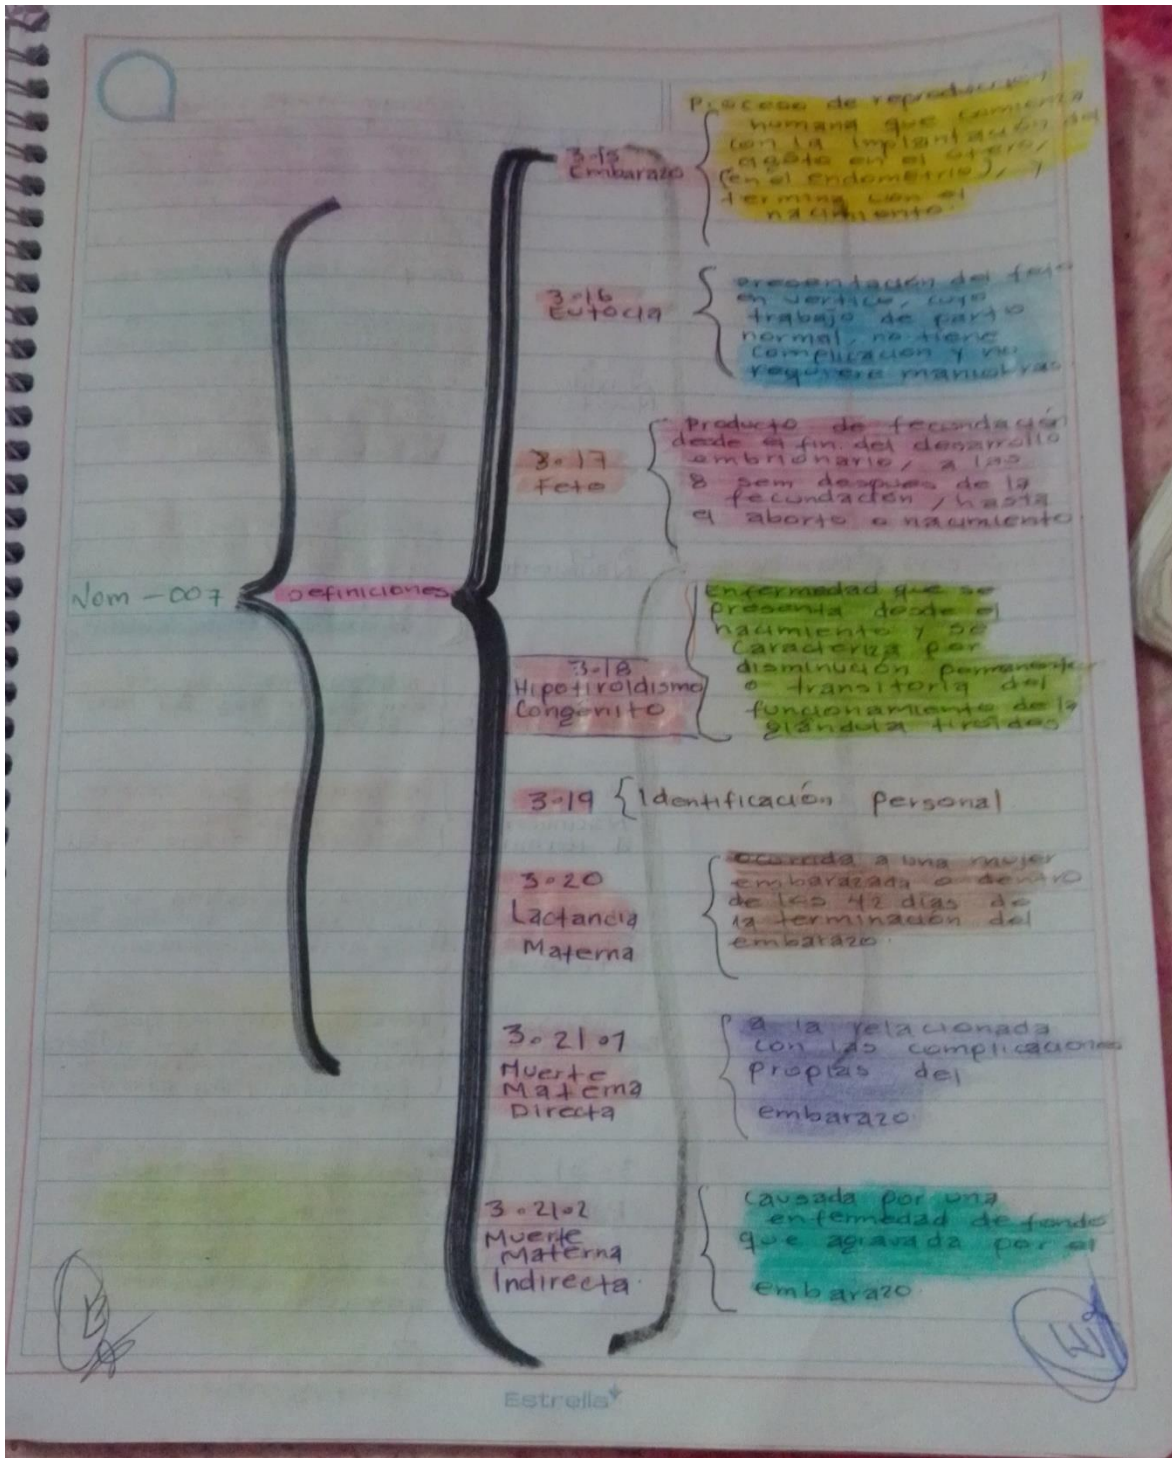 Nom - 007
Definiciones
3.15
Embarazo
Proceso de reproducción
humana que comienza
con la implantación del
en el útero,
(en el endometrio), y
termina con el
nacimiento.
3.16
Eutocia
presentación del feto
en vertice, cuyo
trabajo de parto
normal, no tiene
complicación y no
requiere maniobras
3.17
Feto
Producto de fecundación
desde el fin. del desarrollo
embrionario, a las
8 sem despues de la
fecundación, hasta
el aborto o nacimiento
3.18
Hipotiroidismo
Congenito
Enfermedad que se
presenta desde el
nacimiento y se
caracteriza por
disminución permanente
o transitoria del
funcionamiento de la
glándula tiroides
3.19
Identificación personal
3.20
Lactancia
Materna
ocurrida a una mujer
embarazada o dentro
de los 42 días de
la terminación del
embarazo.
3.21.1
Muerte
Materna
Directa
a la relacionada
con las complicaciones
propias del
embarazo
3.21.2
Muerte
Materna
Indirecta.
causada por una
enfermedad de fondo
que agravada por el
embarazo
Estrella